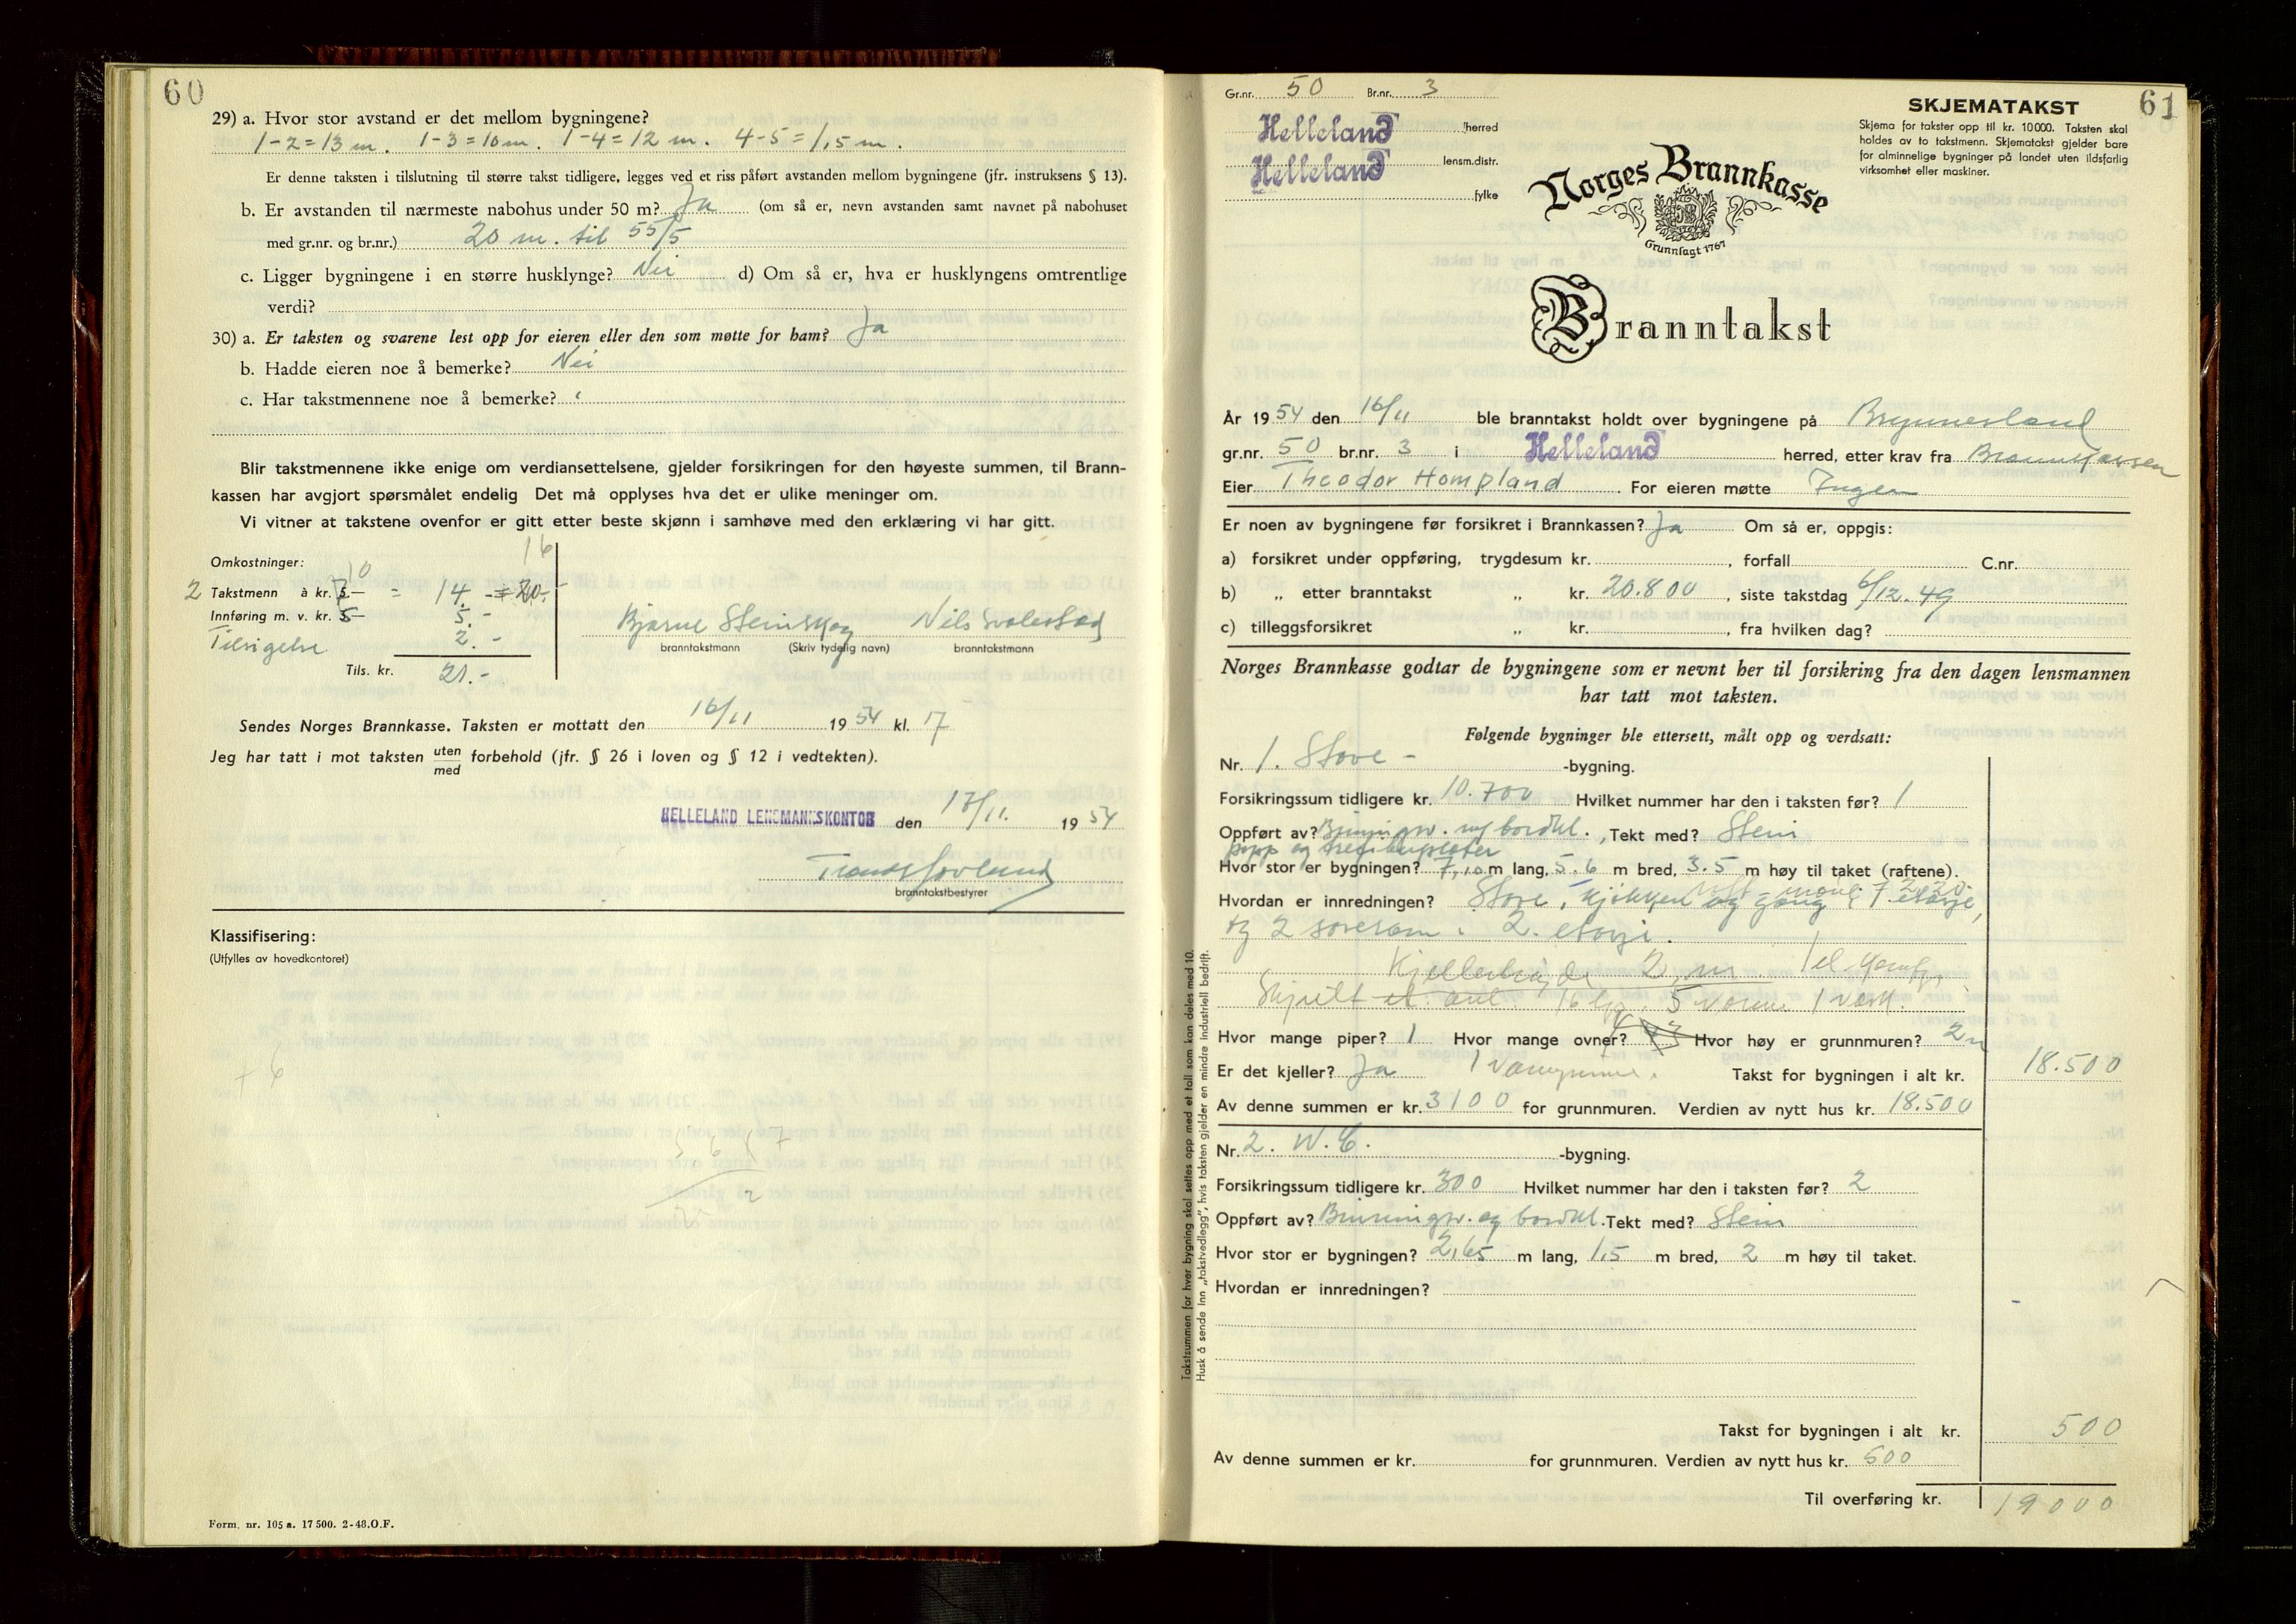 60
29) a. Hvor stor avstand er det mellom bygningene?
1-2=13 m. 1-3=10 m. 1-4=12 m. 4-5=1,5 m.
Er denne taksten i tilslutning til større takst tidligere, legges ved et riss påført avstanden mellom bygningene (jfr. instruksens § 13).
b. Er avstanden til nærmeste nabohus under 50 m? Ja (om så er, nevn avstanden samt navnet på nabohuset
med gr.nr. og br.nr.) 20 m. til 55/5
c. Ligger bygningene i en større husklynge? Nei d) Om så er, hva er husklyngens omtrentlige
verdi?
30) a. Er taksten og svarene lest opp for eieren eller den som møtte for ham? Ja
b. Hadde eieren noe å bemerke? Nei
c. Har takstmennene noe å bemerke? "
Blir takstmennene ikke enige om verdiansettelsene, gjelder forsikringen for den høyeste summen, til Brann-
kassen har avgjort spørsmålet endelig Det må opplyses hva det er ulike meninger om.
Vi vitner at takstene ovenfor er gitt etter beste skjønn i samhøve med den erklæring vi har gitt.
16
Omkostninger:
10
2 Takstmenn à kr. = 14.- = 20.-
Innføring m. v. kr. 5.- 5.-
Tilsigelse 2.-
Tils. kr. 21.-
Bjarne Steinskog Nils Svalestad
branntakstmann (Skriv tydelig navn) branntakstmann
Sendes Norges Brannkasse. Taksten er mottatt den 16/11 1954 kl. 17
Jeg har tatt i mot taksten uten/med forbehold (jfr. § 26 i loven og § 12 i vedtekten).
HELLELAND LENSMANNSKONTOR den 17/11. 1954
branntakstbestyrer
Klassifisering:
(Utfylles av hovedkontoret)
Form. nr. 105 a. 17 500. 2-48. O.F.
Gr.nr. 50 Br.nr. 3
Helleland herred
Helleland lensm.distr.
fylke
SKJEMATAKST 61
Skjema for takster opp til kr. 10000. Taksten skal
holdes av to takstmenn. Skjematakst gjelder bare
for alminnelige bygninger på landet uten ildsfarlig
virksomhet eller maskiner.
Norges Brannkasse
Grunnlagt 1767
Branntakst
År 1954 den 16/11 ble branntakst holdt over bygningene på Brynnesland
gr.nr. 50 br.nr. 3 i Helleland herred, etter krav fra Brannkassen
Eier Theodor Hompland. For eieren møtte Ingen
Er noen av bygningene før forsikret i Brannkassen? Ja Om så er, oppgis:
a) forsikret under oppføring, trygdesum kr. , forfall C.nr.
b) „ etter branntakst „ kr. 20.800, siste takstdag 6/12.49
c) tilleggsforsikret „ kr. , fra hvilken dag?
Norges Brannkasse godtar de bygningene som er nevnt her til forsikring fra den dagen lensmannen
har tatt mot taksten.
Følgende bygninger ble ettersett, målt opp og verdsatt:
Nr. 1. Stove- -bygning.
Forsikringssum tidligere kr. 10.700 Hvilket nummer har den i taksten før? 1
Oppført av? Binningsv. m/ bordkl., Tekt med? Stein
papp og trefiberplater
Hvor stor er bygningen? 7,10 m lang, 5.6 m bred, 3.5 m høy til taket (raftene).
Hvordan er innredningen? Stove, kjøkken og gang i 1. etasje,
og 2 soverom i 2. etasje.
Kjellerhøyde 2 m. 1 el
Skjult el. anl. 16 5 varme 1 vask.
Hvor mange piper? 1 Hvor mange ovner? 4 Hvor høy er grunnmuren? 2 m
Er det kjeller? Ja 1 Takst for bygningen i alt kr. 18.500
Av denne summen er kr. 3100 for grunnmuren. Verdien av nytt hus kr. 18.500
Nr. 2. W.C. -bygning.
Forsikringssum tidligere kr. 300 Hvilket nummer har den i taksten før? 2
Oppført av? Binningsv. og bordkl. Tekt med? Stein
Hvor stor er bygningen? 2,65 m lang, 1,5 m bred, 2 m høy til taket.
Hvordan er innredningen?
Takst for bygningen i alt kr. 500
Av denne summen er kr. for grunnmuren. Verdien av nytt hus kr. 500
Til overføring kr. 19000
Takstsummen for hver bygning skal settes opp med et tall som kan deles med 10.
Husk å sende inn „takstvedlegg", hvis taksten gjelder en mindre industriell bedrift.